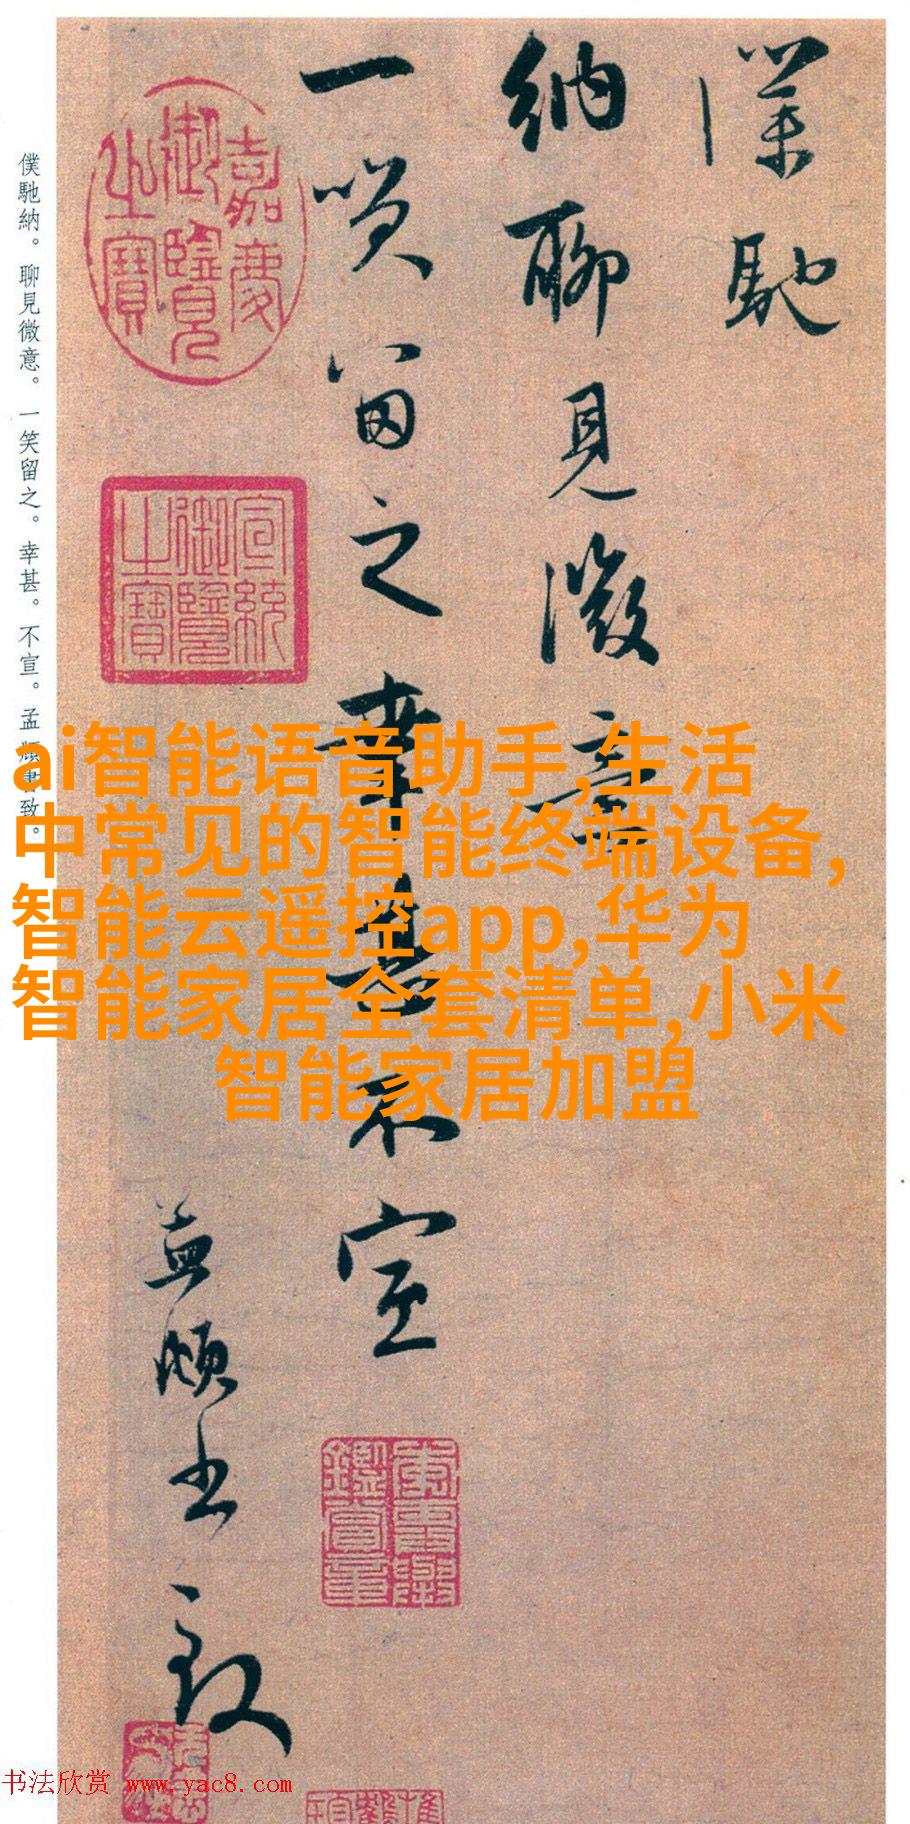 僕馳
納聊見微意
一笑留之幸甚不宣
孟頫書致
嘉慶
御覽
之寶
宣統
御覽
之寶
僕馳納。聊見微意。一笑留之。幸甚。不宣。孟頫書致。
ai智能语音助手,生活
中常见的智能终端设备,
智能云遥控app,华为
智能家居全套清单,小米
智能家居加盟
书法欣赏 www.yac8.com